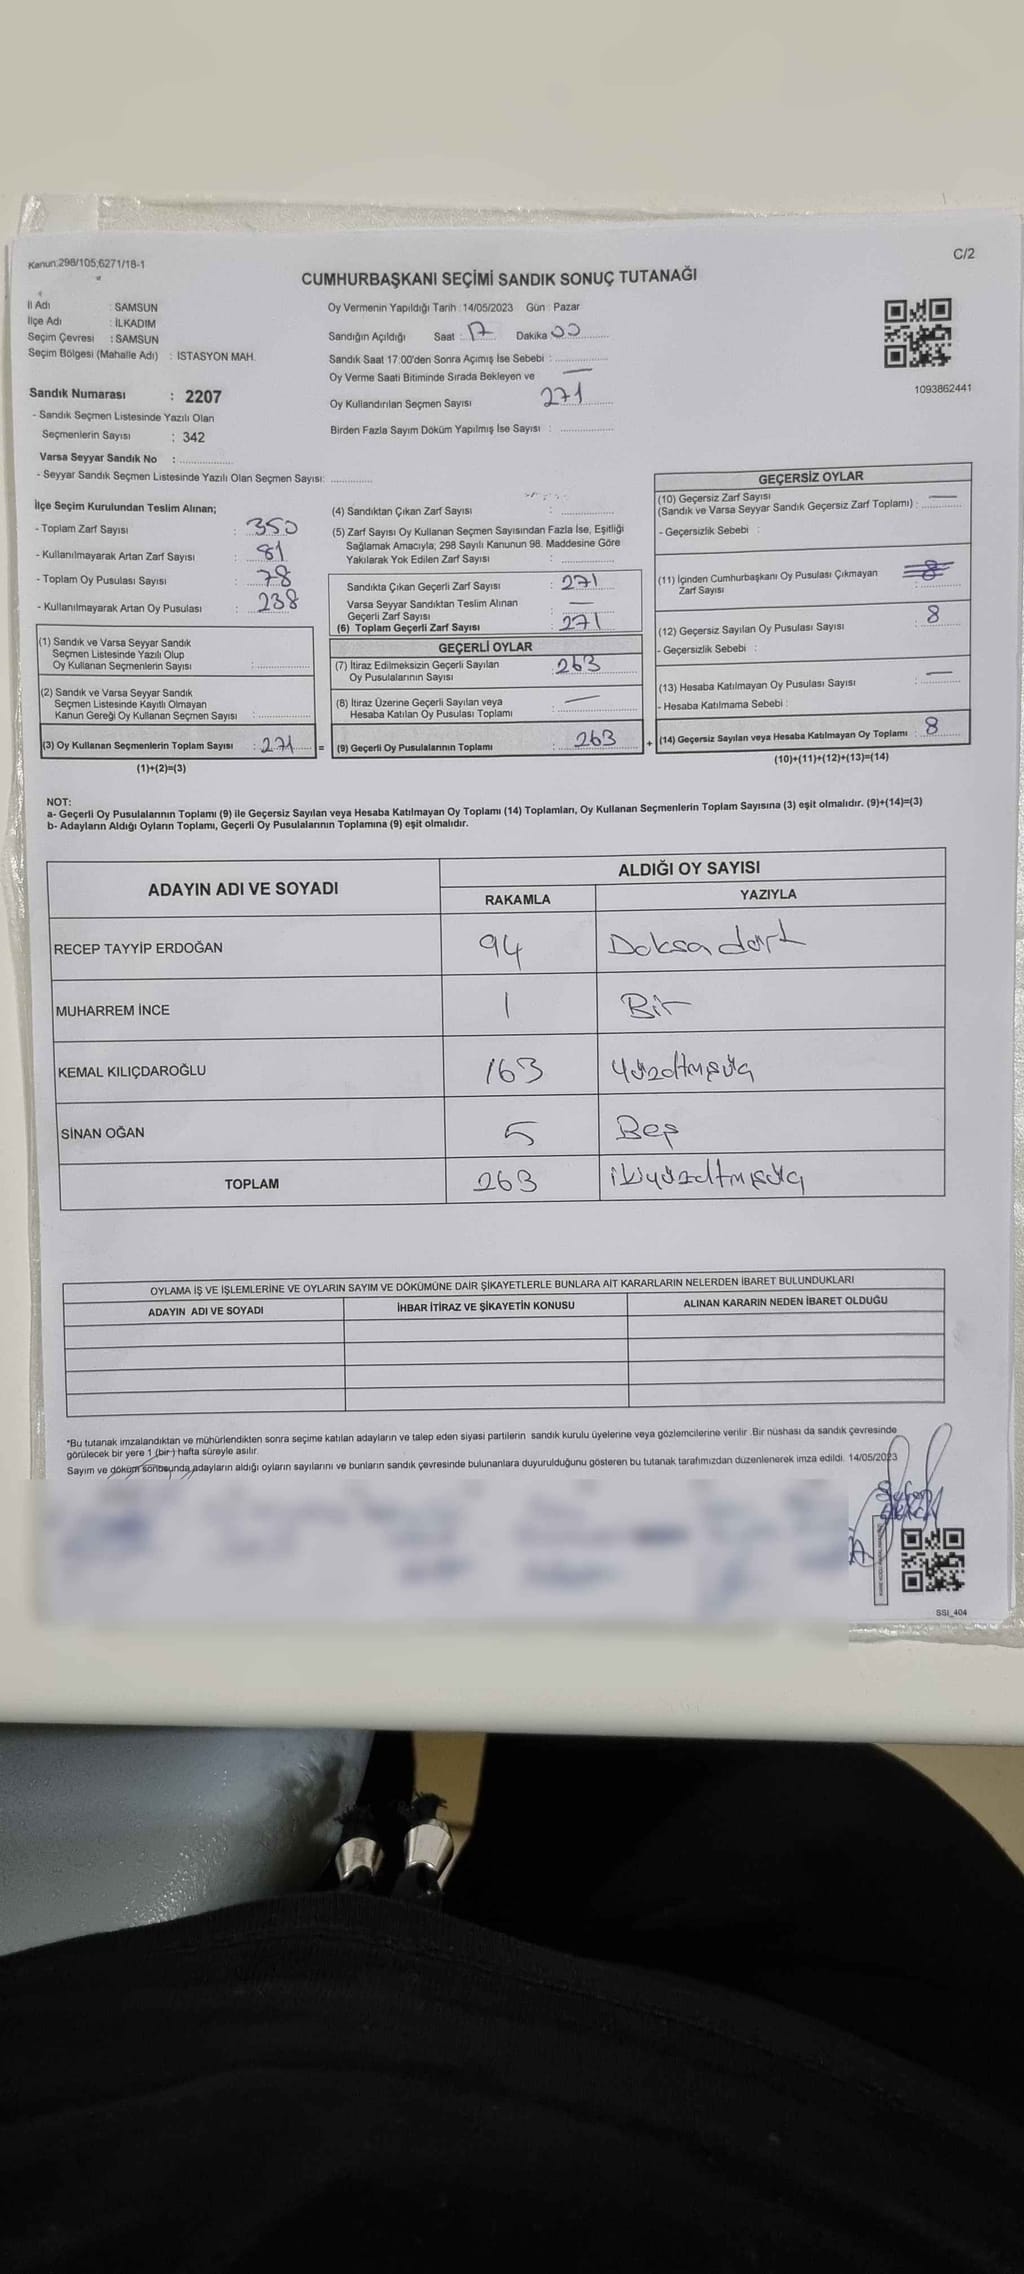 Kanun:298/105,6271/18-1
C/2
CUMHURBAŞKANI SEÇİMİ SANDIK SONUÇ TUTANAĞI
İl Adı : SAMSUN
İlçe Adı : İLKADIM
Seçim Çevresi : SAMSUN
Seçim Bölgesi (Mahalle Adı) : İSTASYON MAH.
Oy Vermenin Yapıldığı Tarih :14/05/2023 Gün : Pazar
Sandığın Açıldığı Saat : 17 Dakika 00
Sandık Saat 17:00'den Sonra Açımış İse Sebebi :
Oy Verme Saati Bitiminde Sırada Bekleyen ve —
Oy Kullandırılan Seçmen Sayısı 271
Birden Fazla Sayım Döküm Yapılmış İse Sayısı :
1093862441
Sandık Numarası : 2207
- Sandık Seçmen Listesinde Yazılı Olan
Seçmenlerin Sayısı : 342
Varsa Seyyar Sandık No :
- Seyyar Sandık Seçmen Listesinde Yazılı Olan Seçmen Sayısı:
İlçe Seçim Kurulundan Teslim Alınan;
- Toplam Zarf Sayısı : 350
- Kullanılmayarak Artan Zarf Sayısı : 81
- Toplam Oy Pusulası Sayısı : 78
- Kullanılmayarak Artan Oy Pusulası : 238
(1) Sandık ve Varsa Seyyar Sandık
Seçmen Listesinde Yazılı Olup
Oy Kullanan Seçmenlerin Sayısı :
(2) Sandık ve Varsa Seyyar Sandık
Seçmen Listesinde Kayıtlı Olmayan
Kanun Gereği Oy Kullanan Seçmen Sayısı :
(3) Oy Kullanan Seçmenlerin Toplam Sayısı : 271 =
(1)+(2)=(3)
(4) Sandıktan Çıkan Zarf Sayısı :
(5) Zarf Sayısı Oy Kullanan Seçmen Sayısından Fazla İse, Eşitliği
Sağlamak Amacıyla; 298 Sayılı Kanunun 98. Maddesine Göre
Yakılarak Yok Edilen Zarf Sayısı :
Sandıkta Çıkan Geçerli Zarf Sayısı : 271
Varsa Seyyar Sandıktan Teslim Alınan —
Geçerli Zarf Sayısı :
(6) Toplam Geçerli Zarf Sayısı : 271
GEÇERLİ OYLAR
(7) İtiraz Edilmeksizin Geçerli Sayılan
Oy Pusulalarının Sayısı : 263
(8) İtiraz Üzerine Geçerli Sayılan veya
Hesaba Katılan Oy Pusulası Toplamı : —
(9) Geçerli Oy Pusulalarının Toplamı : 263 +
GEÇERSİZ OYLAR
(10) Geçersiz Zarf Sayısı
(Sandık ve Varsa Seyyar Sandık Geçersiz Zarf Toplamı) : —
- Geçersizlik Sebebi :
(11) İçinden Cumhurbaşkanı Oy Pusulası Çıkmayan
Zarf Sayısı : 8
(12) Geçersiz Sayılan Oy Pusulası Sayısı : 8
- Geçersizlik Sebebi :
(13) Hesaba Katılmayan Oy Pusulası Sayısı : —
- Hesaba Katılmama Sebebi :
(14) Geçersiz Sayılan veya Hesaba Katılmayan Oy Toplamı : 8
(10)+(11)+(12)+(13)=(14)
NOT:
a- Geçerli Oy Pusulalarının Toplamı (9) ile Geçersiz Sayılan veya Hesaba Katılmayan Oy Toplamı (14) Toplamları, Oy Kullanan Seçmenlerin Toplam Sayısına (3) eşit olmalıdır. (9)+(14)=(3)
b- Adayların Aldığı Oyların Toplamı, Geçerli Oy Pusulalarının Toplamına (9) eşit olmalıdır.
ADAYIN ADI VE SOYADI
ALDIĞI OY SAYISI
RAKAMLA YAZIYLA
RECEP TAYYİP ERDOĞAN 94 Doksadört
MUHARREM İNCE 1 Bir
KEMAL KILIÇDAROĞLU 163 Yüzaltmışüç
SİNAN OĞAN 5 Beş
TOPLAM 263 ikiyüzaltmışüç
OYLAMA İŞ VE İŞLEMLERİNE VE OYLARIN SAYIM VE DÖKÜMÜNE DAİR ŞİKAYETLERLE BUNLARA AİT KARARLARIN NELERDEN İBARET BULUNDUKLARI
ADAYIN ADI VE SOYADI İHBAR İTİRAZ VE ŞİKAYETİN KONUSU ALINAN KARARIN NEDEN İBARET OLDUĞU
*Bu tutanak imzalandıktan ve mühürlendikten sonra seçime katılan adayların ve talep eden siyasi partilerin sandık kurulu üyelerine veya gözlemcilerine verilir .Bir nüshası da sandık çevresinde
görülecek bir yere 1 (bir) hafta süreyle asılır.
Sayım ve döküm sonucunda adayların aldığı oyların sayılarını ve bunların sandık çevresinde bulunanlara duyurulduğunu gösteren bu tutanak tarafımızdan düzenlenerek imza edildi. 14/05/2023
SSI_404